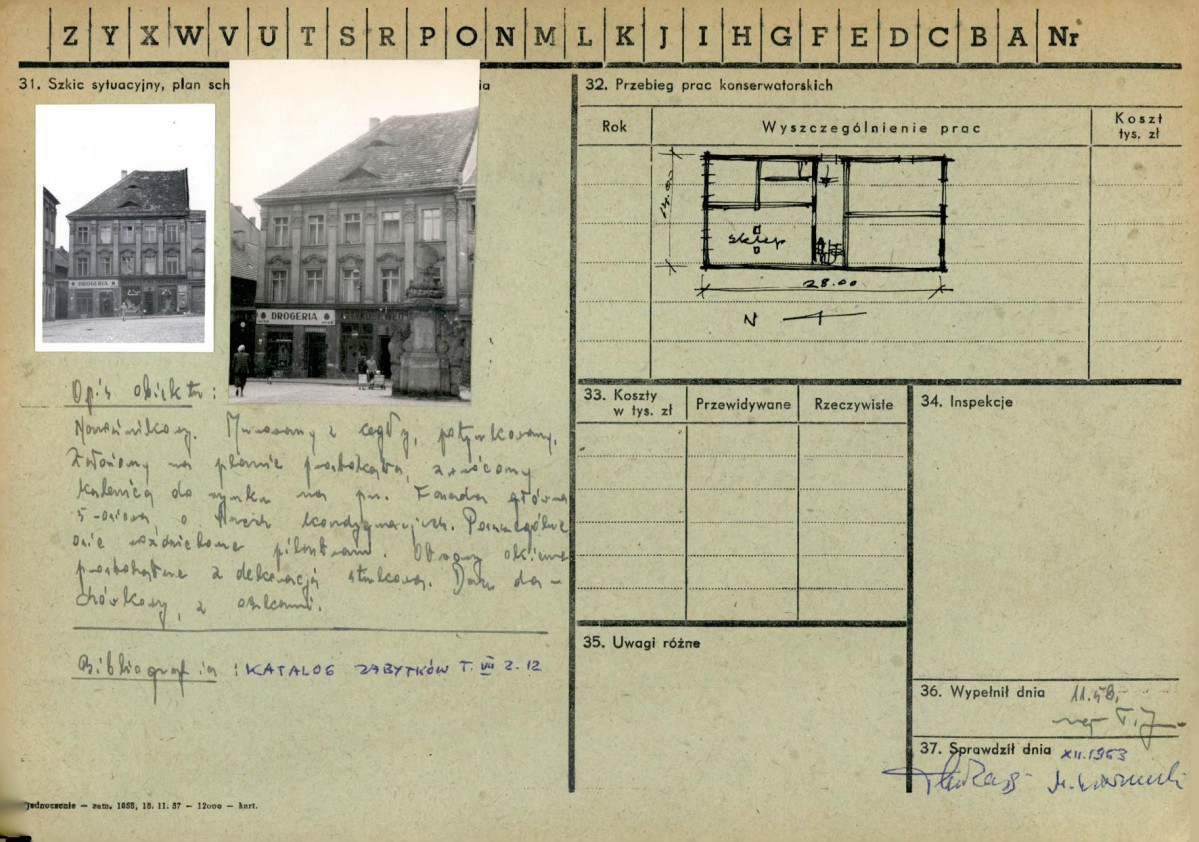 Z Y X W V U T S R P O N M L K J I H G F E D C B A Nr
31. Szkic sytuacyjny, plan sch
ia
DROGERIA
DROGERIA
Opis obiektu:
Murowany z cegły, potynkowany.
Założony na planie prostokąta, zwrócony
kalenicą do rynku na pn. Fasada główna
5-osiowa, o trzech kondygnacjach. Poszczególne
osie rozdzielone pilastrami. Otwory okienne
prostokątne z dekoracją stiukową. Dach da-
chówkowy, z
Bibliografia: KATALOG ZABYTKÓW T. VII Z. 12
jednoczenie — zam. 1058, 18. 11. 57 — 12000 — kart.
32. Przebieg prac konserwatorskich
Rok
Wyszczególnienie prac
Koszt
tys. zł
sklep
28.00
N
33. Koszty
w tys. zł
Przewidywane
Rzeczywiste
34. Inspekcje
35. Uwagi różne
36. Wypełnił dnia 11.58,
mgr
37. Sprawdził dnia XII.1963